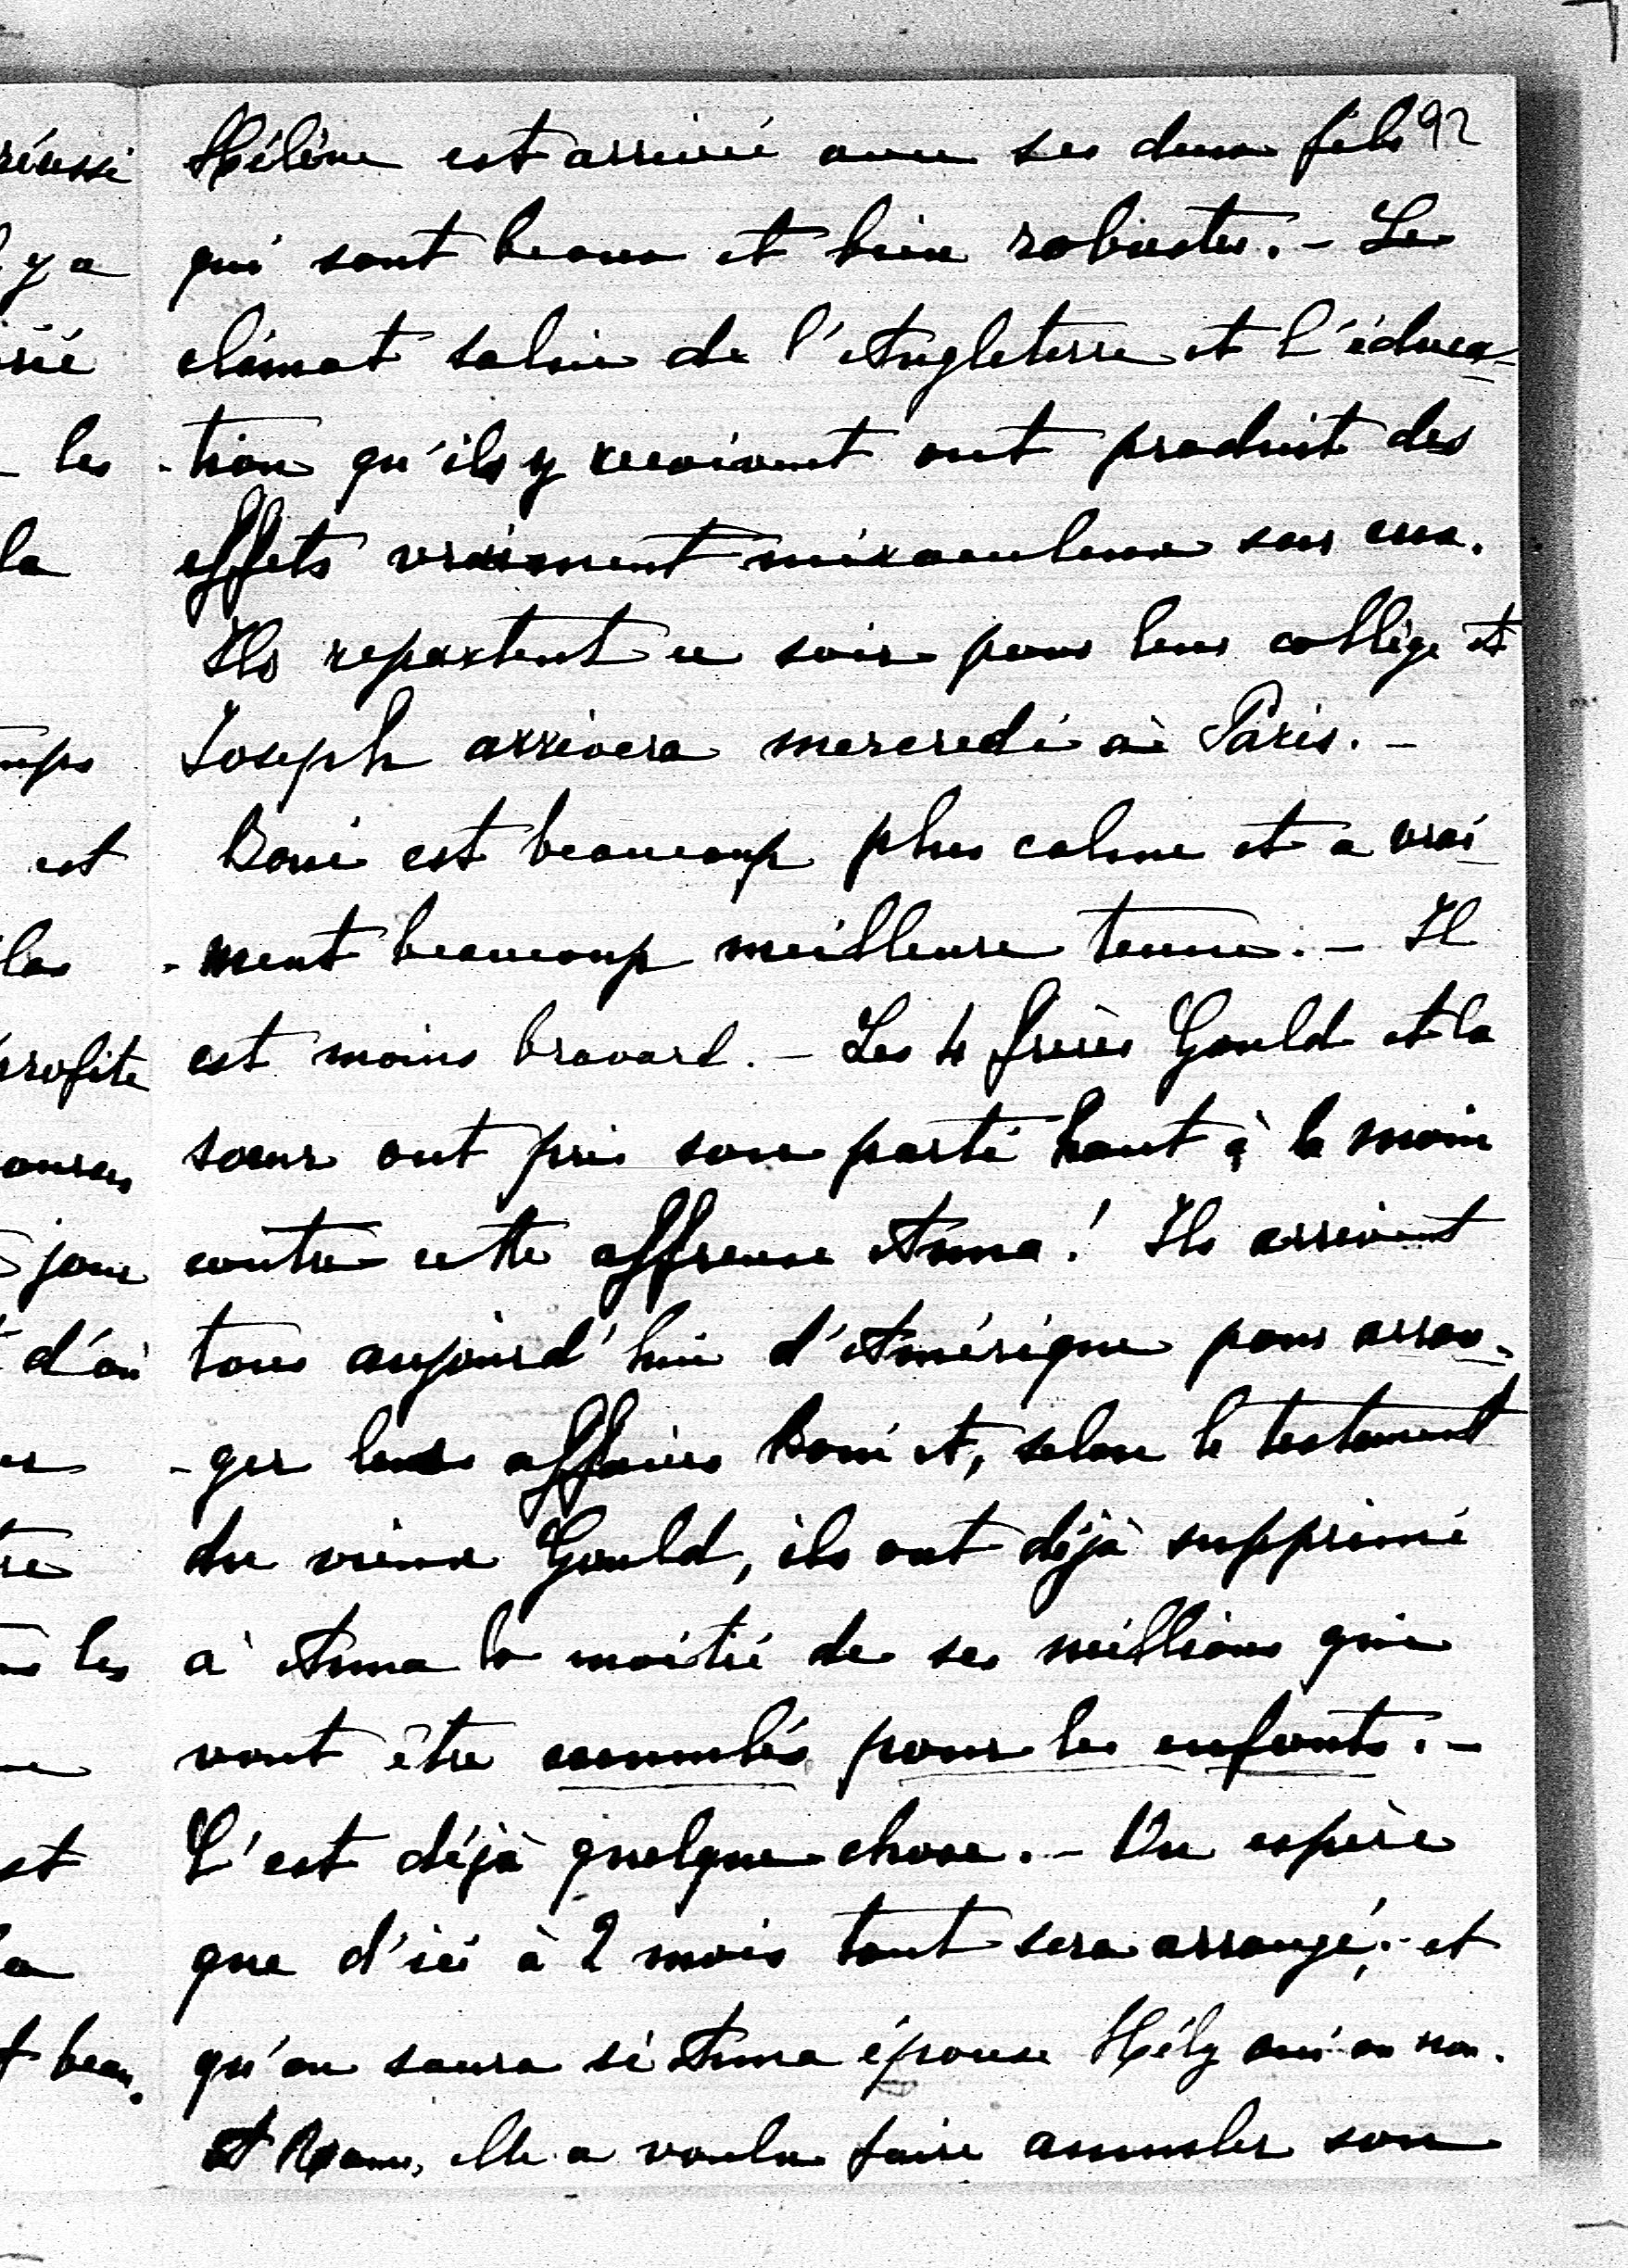 92
Hélène est arrivée avec ses deux fils
qui sont beaux et bien robustes. - Le
climat salin de l'Angleterre et l'éduca-
-tion qu'ils y reçoivent ont produit des
effets vraiment miraculeux sur eux.
Ils repartent ce soir pour leur collège et
Joseph arrivera mercredi à Paris. -
Boni est beaucoup plus calme et a vrai-
-ment beaucoup meilleure tenue. - Il
est moins bravard. - Les 4 frères Gould et la
sœur ont pris son parti haut à la main
contre cette affreuse Anna! Ils arrivent
tous aujourd'hui d'Amérique pour arran-
-ger leurs affaires Boni et, selon le testament
du vieux Gould, ils ont déjà supprimé
à Anna la moitié de ses millions qui
vont être accumulés pour les enfants. -
C'est déjà quelque chose. - On espère
que d'ici à 2 mois tout sera arrangé; et
qu'on saura si Anna épouse Hély oui ou non.
A Rome, elle a voulu faire annuler son
réussi
y a
les
la
est
profite
jour
d'où
les
beau.